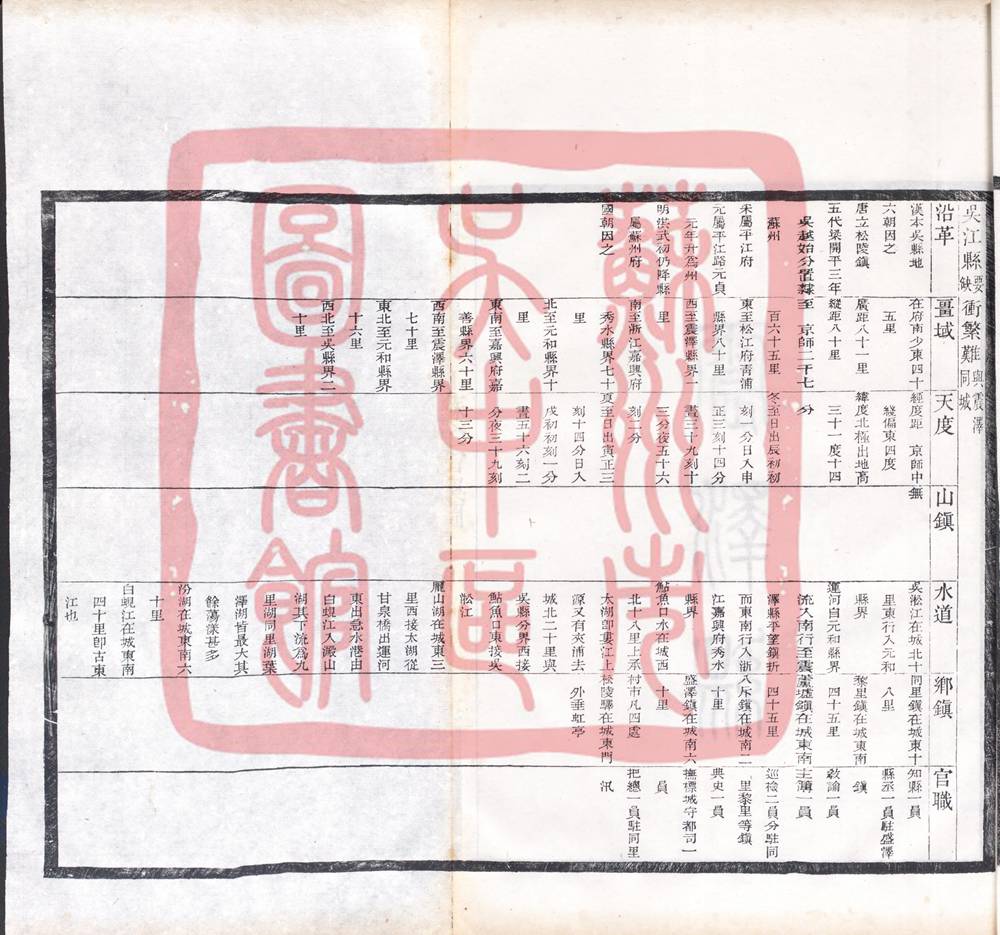 吳江縣要缺衝繁難與震澤同城
沿革
漢本吳縣地
六朝因之
唐立松陵鎮
五代梁開平三年
吳越始分置隸
蘇州
宋屬平江府
元屬平江路元貞
元年升為州
明洪武初仍降縣
屬蘇州府
國朝因之
疆域
在府南少東四十
五里
廣距八十一里
縱距八十里
至 京師二千七
百六十五里
東至松江府青浦
縣界八十里
西至震澤縣界一
里
南至浙江嘉興府
秀水縣界七十
里
北至元和縣界十
里
東南至嘉興府嘉
善縣界六十里
西南至震澤縣界
七十里
東北至元和縣界
十六里
西北至吳縣界二
十里
天度
經度距 京師中
綫偏東四度
緯度北極出地高
三十一度十四
分
冬至日出辰初初
刻一分日入申
正三刻十四分
晝三十九刻十
三分夜五十六
刻二分
夏至日出寅正三
刻十四分日入
戌初初刻一分
晝五十六刻二
分夜三十九刻
十三分
山鎮
無
水道
吳淞江在城北十
里東行入元和
縣界
運河自元和縣界
流入南行至震
澤縣平望鎮折
而東南行入浙
江嘉興府秀水
縣界
鮎魚口水在城西
北十八里上承
太湖即婁江上
源又有夾浦去
城北二十里與
吳縣分界西接
鮎魚口東接吳
淞江
龐山湖在城東三
里西接太湖從
甘泉橋出運河
東出急水港由
白蜆江入澱山
湖其下流為九
里湖同里湖葉
澤湖皆最大其
餘蕩漾甚多
汾湖在城東南六
十里
白蜆江在城東南
四十里即古東
江也
鄉鎮
同里鎮在城東十
八里
黎里鎮在城東南
四十五里
蘆墟鎮在城東南
四十五里
八斥鎮在城南二
十里
盛澤鎮在城南六
十里
村市凡四處
松陵驛在城東門
外垂虹亭
官職
知縣一員
縣丞一員駐盛澤
鎮
教諭一員
主簿一員
巡檢二員分駐同
里黎里等鎮
典史一員
撫標城守都司一
員
把總一員駐同里
汛
蘇州市
吳中區
圖書館